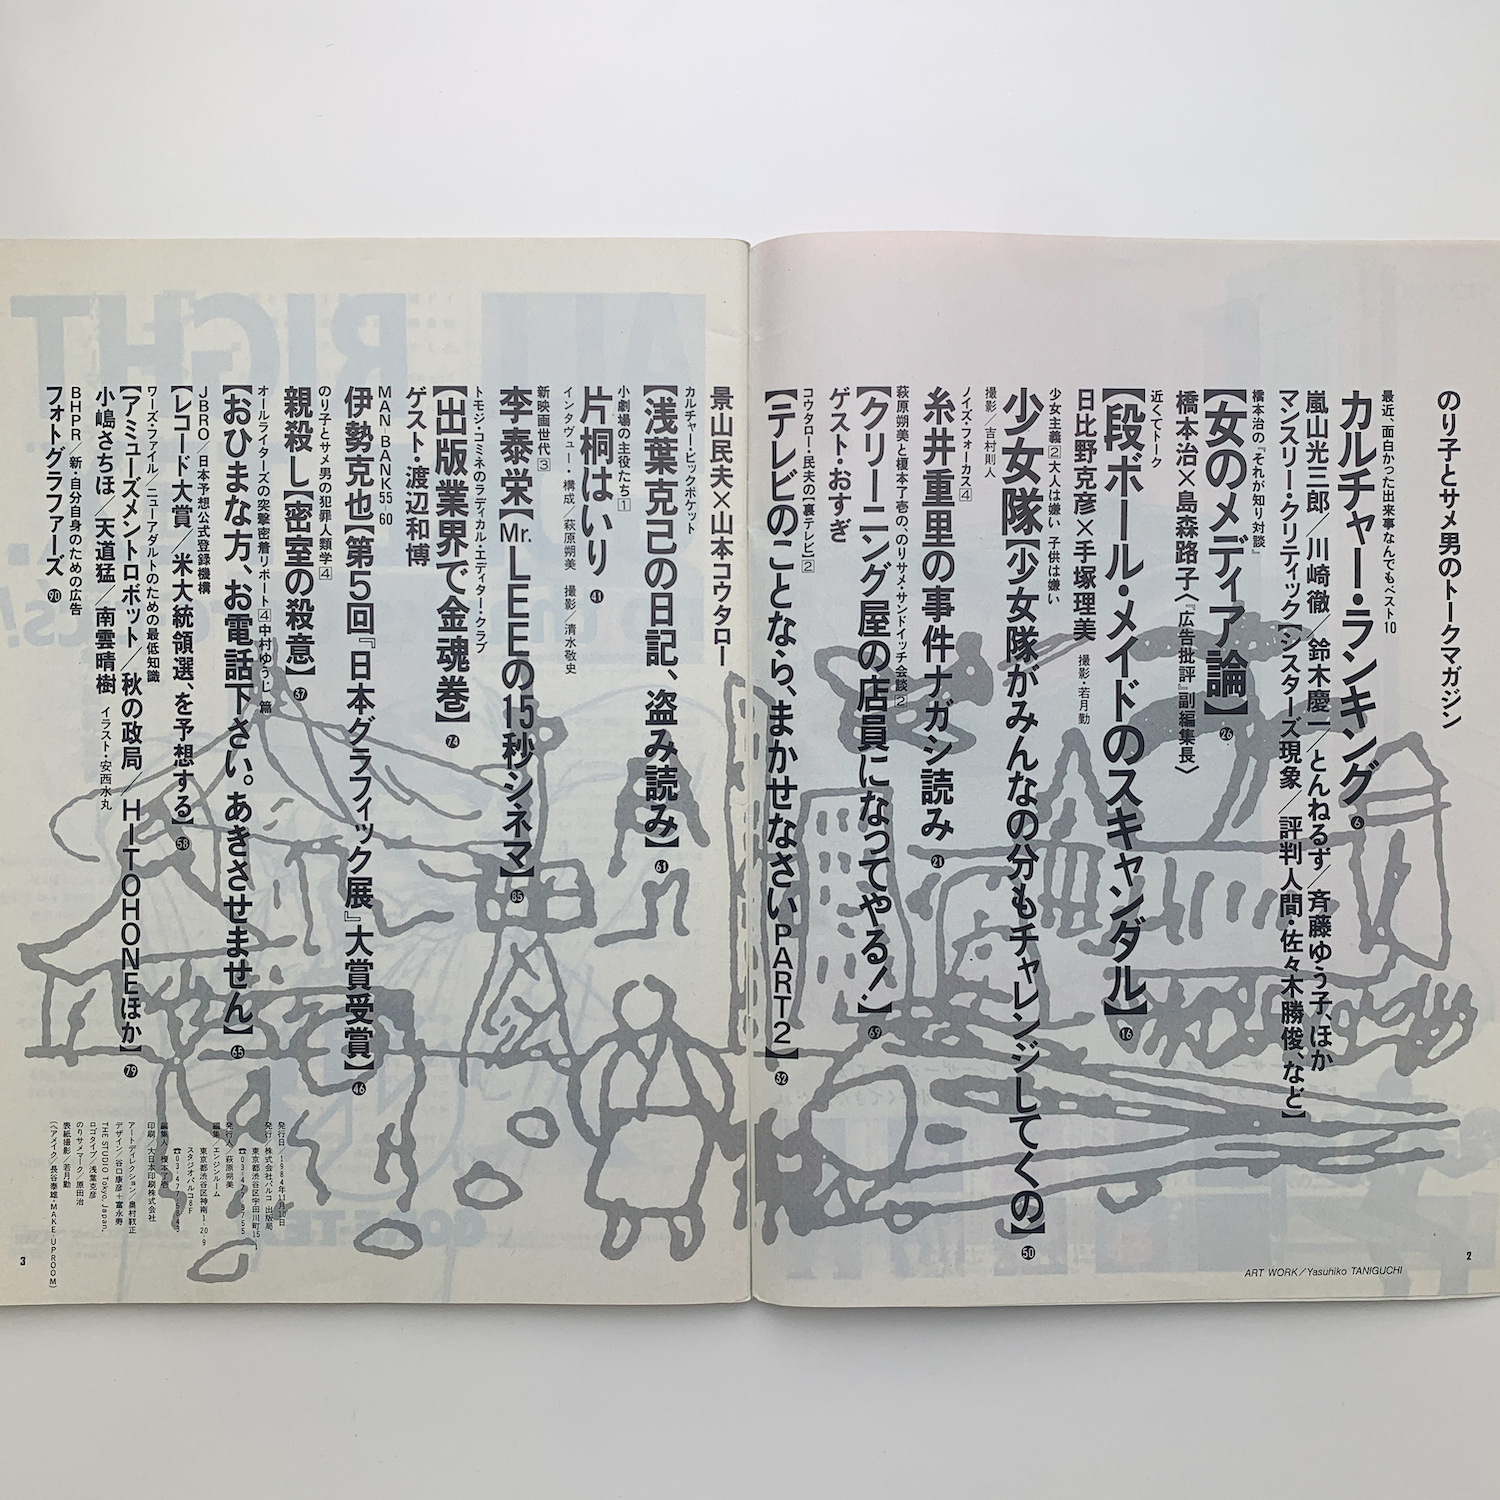 のり子とサメ男のトークマガジン
最近、面白かった出来事なんでもベスト10
カルチャー・ランキング 6
嵐山光三郎／川崎徹／鈴木慶一／とんねるず／斉藤ゆう子、ほか
マンスリー・クリティック【シスターズ現象／評判人間・佐々木勝俊、など】
橋本治の『それが知り対談』
【女のメディア論】 26
橋本治×島森路子〈『広告批評』副編集長〉
近くてトーク
【段ボール・メイドのスキャンダル】 16
日比野克彦×手塚理美 撮影・若月勤
少女主義2大人は嫌い 子供は嫌い
少女隊【少女隊がみんなの分もチャレンジしてくの】 50
撮影／吉村則人
ノイズ・フォーカス4
糸井重里の事件ナガシ読み 21
萩原朔美と榎本了壱の、のりサメ・サンドイッチ会談2
【クリーニング屋の店員になってやる！】 69
ゲスト・おすぎ
コウタロー・民夫の【裏テレビ】2
【テレビのことなら、まかせなさいPART2】 32
景山民夫×山本コウタロー
カルチャー・ピックポケット
【浅葉克己の日記、盗み読み】 61
小劇場の主役たち1
片桐はいり 41
インタヴュー・構成／萩原朔美 撮影／清水敬史
新映画世代3
李泰栄【Mr.LEEの15秒シネマ】 85
トモジ・コミネのラディカル・エディター・クラブ
【出版業界で金魂巻】 74
ゲスト・渡辺和博
MAN-BANK55-60
伊勢克也【第5回『日本グラフィック展』大賞受賞】 46
のり子とサメ男の犯罪人類学4
親殺し【密室の殺意】 87
オールライターズの突撃密着リポート4中村ゆうじ篇
【おひまな方、お電話下さい。あきさせません】 65
JBRO／日本予想公式登録機構
【レコード大賞／米大統領選、を予想する】 58
ワーズ・ファイル／ニューアダルトのための最低知識
【アミューズメントロボット／秋の政局／HITOHONEほか】 79
小嶋さちほ／天道猛／南雲晴樹 イラスト・安西水丸
BHPR／新・自分自身のための広告
フォトグラファーズ 90
発行日／1984年11月10日
発行／株式会社パルコ 出版局
東京都渋谷区宇田川町15-1
発行人／萩原朔美
編集／エンジンルーム
東京都渋谷区神南1-20-9
スタジオパルコ8F
編集人／榎本了壱
印刷／大日本印刷株式会社
アートディレクション／奥村靫正
デザイン／谷口康彦＋富永寿
THE STUDIO Tokyo, Japan.
ロゴタイプ／浅葉克彦
のりサメマーク／原田治
表紙撮影／若月勤
（ヘアメイク／長谷泰雄・MAKE-UPROOM）
ART WORK／Yasuhiko TANIGUCHI
2
3